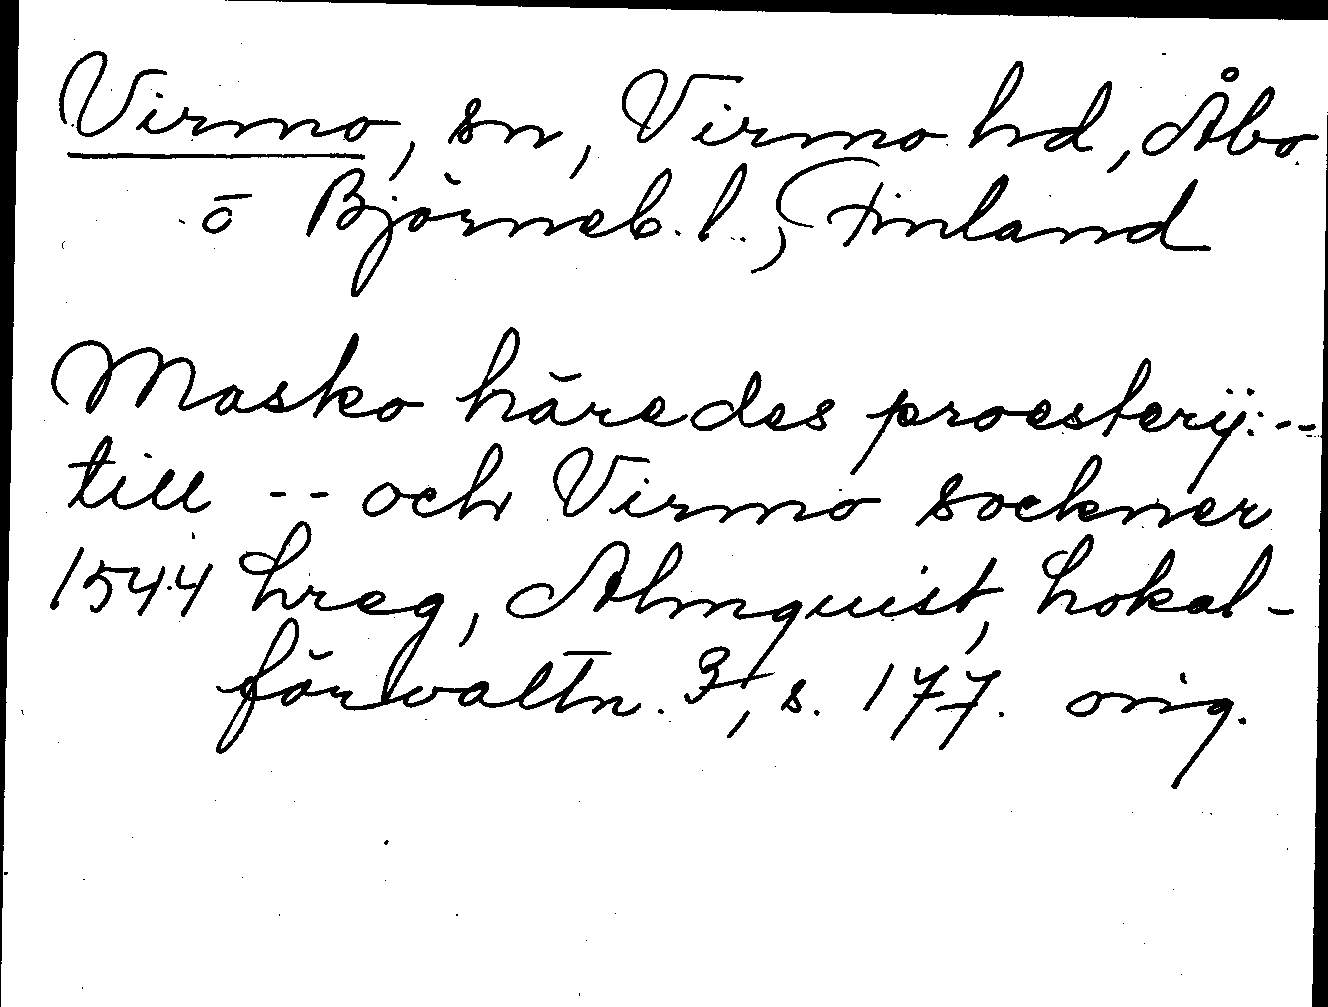 Virmo, sn, Virmo hd, Åbo
o Björneb. l., Finland
Masko häredes proesterij: --
till -- och Virmo sockner
1544 hreg, Almquist, Lokal-
förvaltn. 3, s. 177. orig.